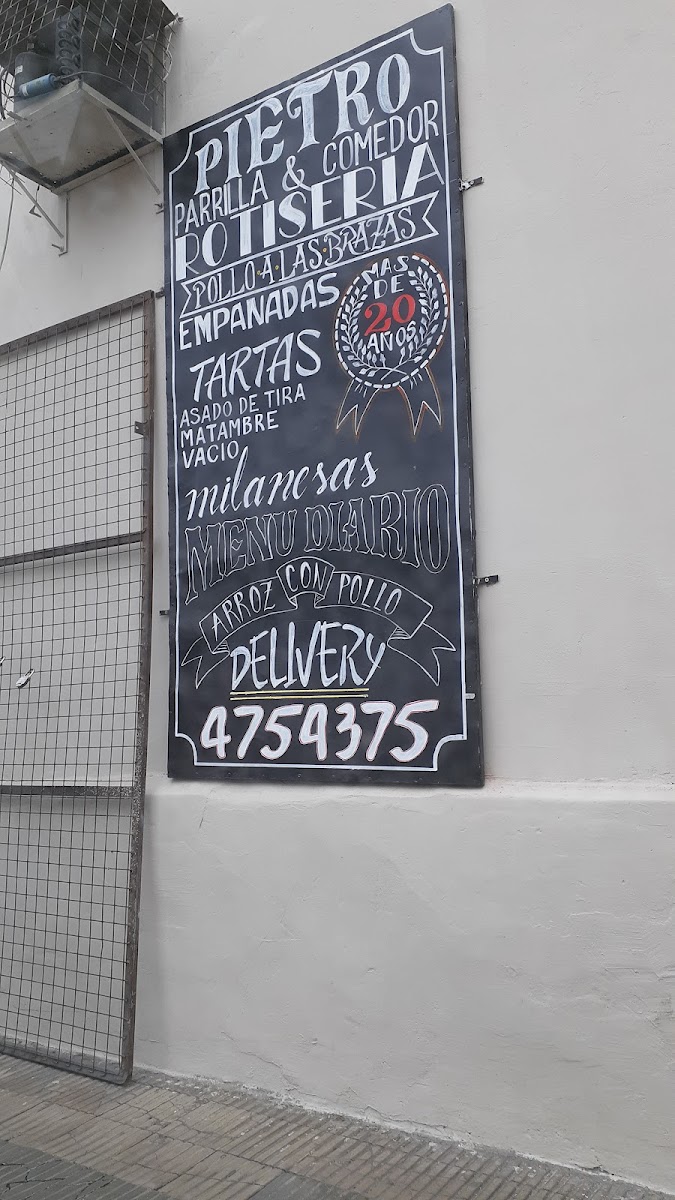 PIETRO
PARRILLA & COMEDOR
ROTISERIA
POLLO·A·LAS·BRAZAS
EMPANADAS
MAS
DE
20
AÑOS
TARTAS
ASADO DE TIRA
MATAMBRE
VACIO
milanesas
MENU DIARIO
ARROZ CON POLLO
DELIVERY
4754375